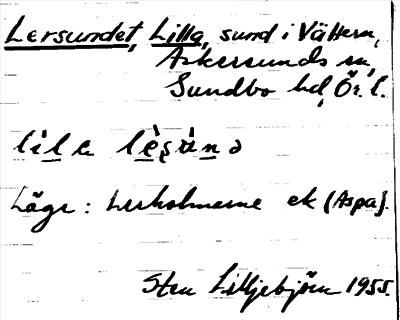 Lersundet, Lilla, sund i Vättern,
Askersunds sn,
Sundbo hd, Ör. l.
lila lèʂùnd
Läge: Lerholmarne ek (Aspa).
Sten Liljebjörn 1955.